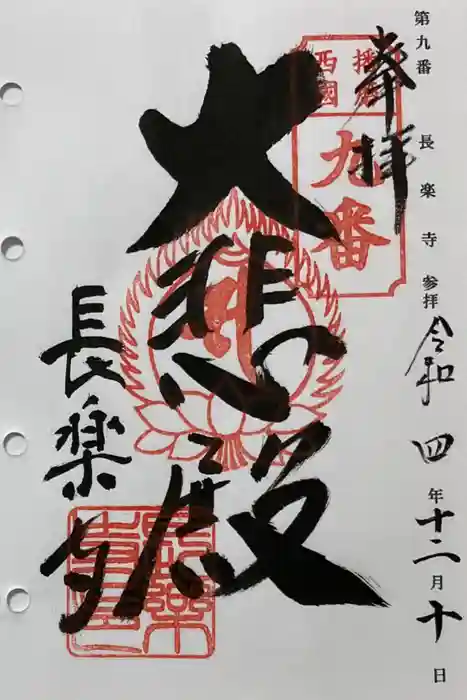 第九番 長楽寺 参拝 令和四年十二月十日
奉拝
播磨
西國
九番
大悲殿
長楽寺